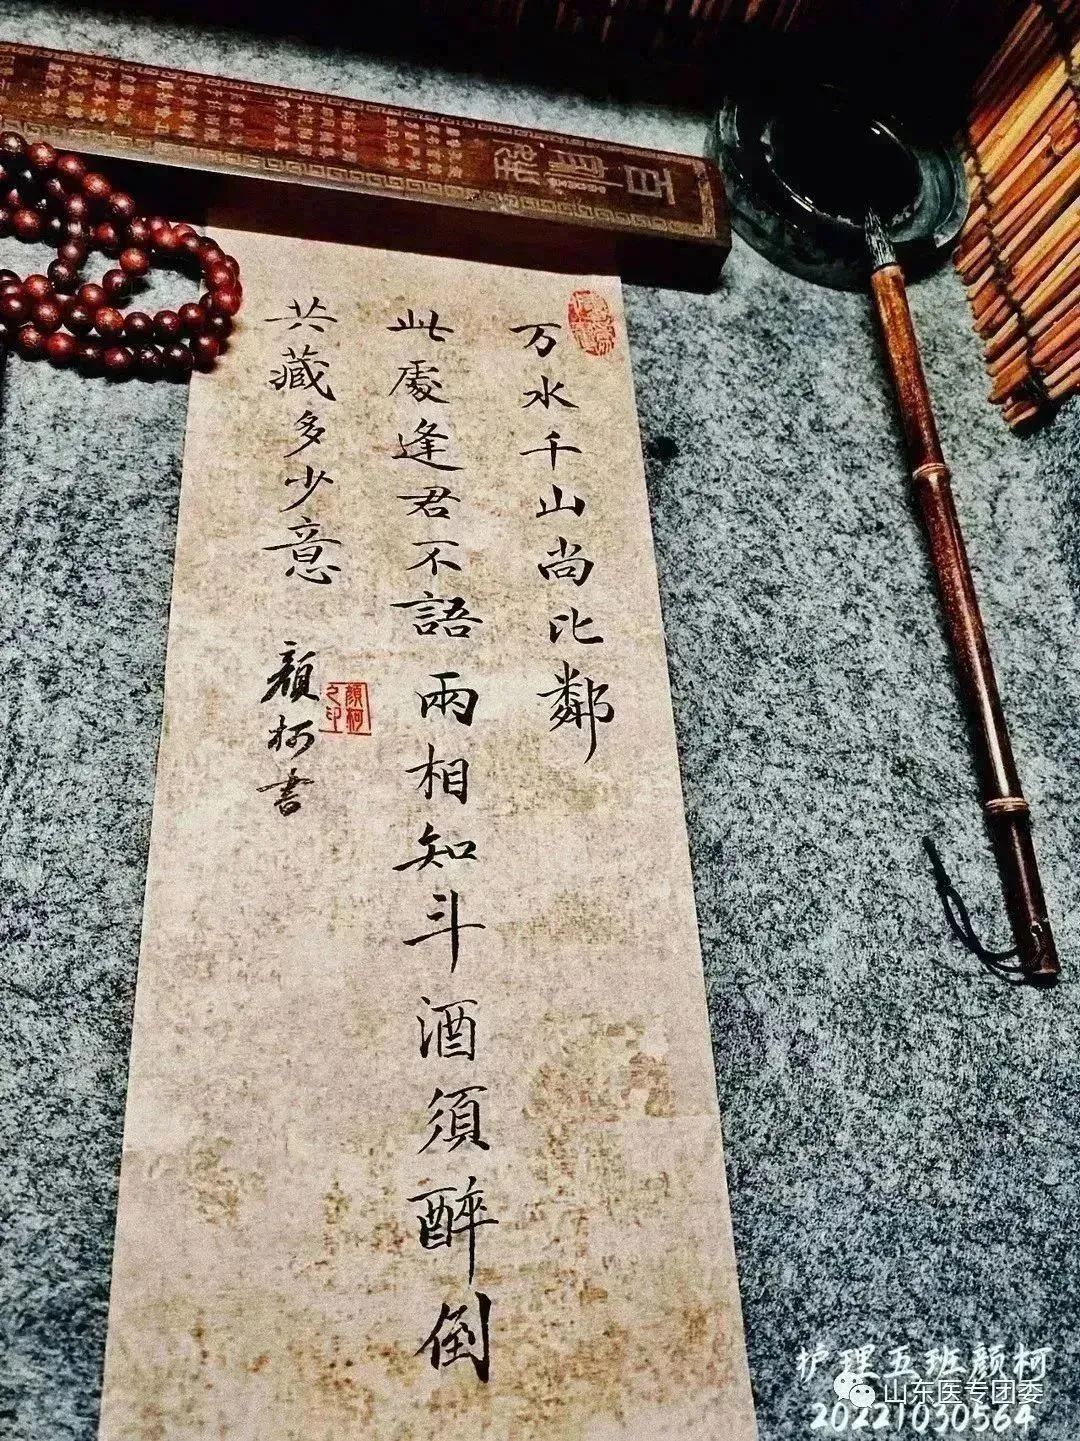 万水千山尚比鄰
此處逢君不語兩相知斗酒須醉倒
共藏多少意
顏柯書
顏柯之印
百
护理五班颜柯
山东医专团委
20221030564